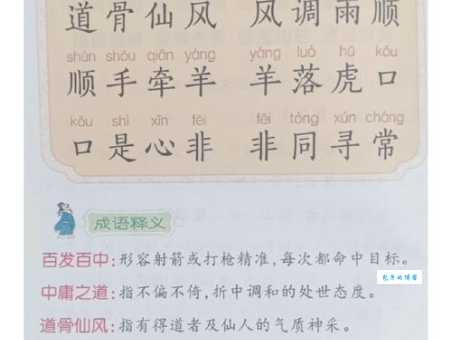 道骨仙风 风调雨顺
shùn shǒu qiān yáng yáng luò hǔ kǒu
顺手牵羊 羊落虎口
kǒu shì xīn fēi fēi tóng xún cháng
口是心非 非同寻常
成语释义
百发百中：形容射箭或打枪精准，每次都命中目标。
中庸之道：指不偏不倚，折中调和的处世态度。
道骨仙风：指有得道者及仙人的气质神采。